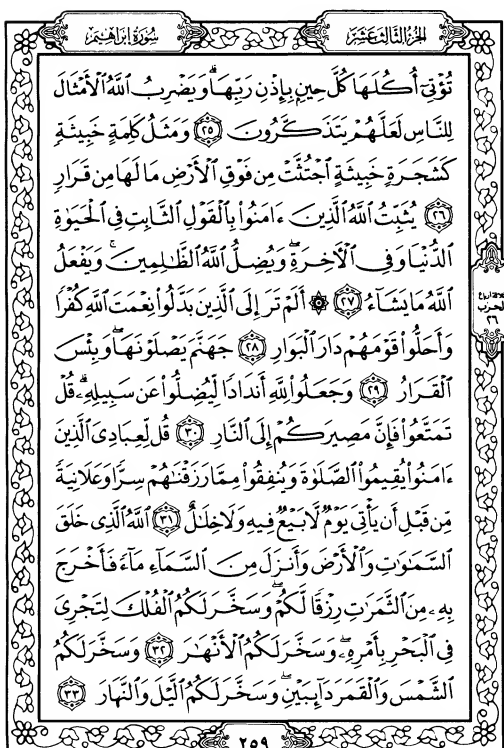 سُورَةُ إِبْرَاهِيم
الجُزءُ الثَّالِثَ عَشَرَ
تُؤْتِىٓ أُكُلَهَا كُلَّ حِينٍۭ بِإِذْنِ رَبِّهَاۗ وَيَضْرِبُ ٱللَّهُ ٱلْأَمْثَالَ
لِلنَّاسِ لَعَلَّهُمْ يَتَذَكَّرُونَ ٢٥ وَمَثَلُ كَلِمَةٍ خَبِيثَةٍ
كَشَجَرَةٍ خَبِيثَةٍ ٱجْتُثَّتْ مِن فَوْقِ ٱلْأَرْضِ مَا لَهَا مِن قَرَارٍ
٢٦ يُثَبِّتُ ٱللَّهُ ٱلَّذِينَ ءَامَنُوا۟ بِٱلْقَوْلِ ٱلثَّابِتِ فِى ٱلْحَيَوٰةِ
ٱلدُّنْيَا وَفِى ٱلْءَاخِرَةِۖ وَيُضِلُّ ٱللَّهُ ٱلظَّٰلِمِينَۚ وَيَفْعَلُ
ٱللَّهُ مَا يَشَآءُ ٢٧ ۞ أَلَمْ تَرَ إِلَى ٱلَّذِينَ بَدَّلُوا۟ نِعْمَتَ ٱللَّهِ كُفْرًا
وَأَحَلُّوا۟ قَوْمَهُمْ دَارَ ٱلْبَوَارِ ٢٨ جَهَنَّمَ يَصْلَوْنَهَاۖ وَبِئْسَ
ٱلْقَرَارُ ٢٩ وَجَعَلُوا۟ لِلَّهِ أَندَادًا لِّيُضِلُّوا۟ عَن سَبِيلِهِۦۗ قُلْ
تَمَتَّعُوا۟ فَإِنَّ مَصِيرَكُمْ إِلَى ٱلنَّارِ ٣٠ قُل لِّعِبَادِىَ ٱلَّذِينَ
ءَامَنُوا۟ يُقِيمُوا۟ ٱلصَّلَوٰةَ وَيُنفِقُوا۟ مِمَّا رَزَقْنَٰهُمْ سِرًّا وَعَلَانِيَةً
مِّن قَبْلِ أَن يَأْتِىَ يَوْمٌ لَّا بَيْعٌ فِيهِ وَلَا خِلَٰلٌ ٣١ ٱللَّهُ ٱلَّذِى خَلَقَ
ٱلسَّمَٰوَٰتِ وَٱلْأَرْضَ وَأَنزَلَ مِنَ ٱلسَّمَآءِ مَآءً فَأَخْرَجَ
بِهِۦ مِنَ ٱلثَّمَرَٰتِ رِزْقًا لَّكُمْۖ وَسَخَّرَ لَكُمُ ٱلْفُلْكَ لِتَجْرِىَ
فِى ٱلْبَحْرِ بِأَمْرِهِۦۖ وَسَخَّرَ لَكُمُ ٱلْأَنْهَٰرَ ٣٢ وَسَخَّرَ لَكُمُ
ٱلشَّمْسَ وَٱلْقَمَرَ دَآئِبَيْنِۖ وَسَخَّرَ لَكُمُ ٱلَّيْلَ وَٱلنَّهَارَ ٣٣
الحزب
٢٦
٢٥٩